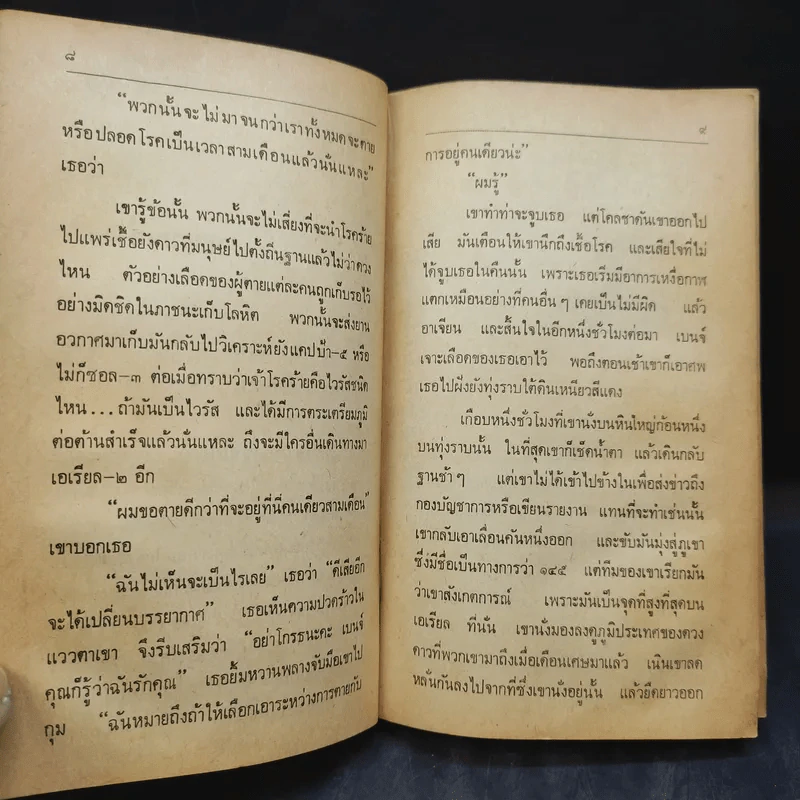 ๘
“พวกนั้นจะไม่มาจนกว่าเราทั้งหมดจะตาย
หรือปลอดโรคเป็นเวลาสามเดือนแล้วนั่นแหละ”
เธอว่า
เขารู้ข้อนั้น พวกนั้นจะไม่เสี่ยงที่จะนำโรคร้าย
ไปแพร่เชื้อยังดาวที่มนุษย์ไปตั้งถิ่นฐานแล้วไม่ว่าดวง
ไหน ตัวอย่างเลือดของผู้ตายแต่ละคนถูกเก็บรอไว้
อย่างมิดชิดในภาชนะเก็บโลหิต พวกนั้นจะส่งยาน
อวกาศมาเก็บมันกลับไปวิเคราะห์ยังแคปป้า-๕ หรือ
ไม่ก็ซอล-๓ ต่อเมื่อทราบว่าเจ้าโรคร้ายคือไวรัสชนิด
ไหน...ถ้ามันเป็นไวรัส และได้มีการตระเตรียมภูมิ
ต่อต้านสำเร็จแล้วนั่นแหละ ถึงจะมีใครอื่นเดินทางมา
เอเรียล-๒ อีก
“ผมขอตายดีกว่าที่จะอยู่ที่นี่คนเดียวสามเดือน”
เขาบอกเธอ
“ฉันไม่เห็นจะเป็นไรเลย” เธอว่า “ดีเสียอีก
จะได้เปลี่ยนบรรยากาศ” เธอเห็นความปวดร้าวใน
แววตาเขา จึงรีบเสริมว่า “อย่าโกรธนะคะ เบนจ์
คุณก็รู้ว่าฉันรักคุณ” เธอยิ้มหวานพลางจับมือเขาไป
กุม “ฉันหมายถึงถ้าให้เลือกเอาระหว่างการตายกับ
๙
การอยู่คนเดียวน่ะ”
“ผมรู้”
เขาทำท่าจะจูบเธอ แต่โคลชาดันเขาออกไป
เสีย มันเตือนให้เขานึกถึงเชื้อโรค และเสียใจที่ไม่
ได้จูบเธอในคืนนั้น เพราะเธอเริ่มมีอาการเหงื่อกาฬ
แตกเหมือนอย่างที่คนอื่น ๆ เคยเป็นไม่มีผิด แล้ว
อาเจียน และสิ้นใจในอีกหนึ่งชั่วโมงต่อมา เบนจ์
เจาะเลือดของเธอเอาไว้ พอถึงตอนเช้าเขาก็เอาศพ
เธอไปฝังยังทุ่งราบใต้ดินเหนียวสีแดง
เกือบหนึ่งชั่วโมงที่เขานั่งบนหินใหญ่ก้อนหนึ่ง
บนทุ่งราบนั้น ในที่สุดเขาก็เช็ดน้ำตา แล้วเดินกลับ
ฐานช้า ๆ แต่เขาไม่ได้เข้าไปข้างในเพื่อส่งข่าวถึง
กองบัญชาการหรือเขียนรายงาน แทนที่จะทำเช่นนั้น
เขากลับเอาเลื่อนคันหนึ่งออก และขับมันมุ่งสู่ภูเขา
ซึ่งมีชื่อเป็นทางการว่า ๑๔๕ แต่ทีมของเขาเรียกมัน
ว่าเขาสังเกตการณ์ เพราะมันเป็นจุดที่สูงที่สุดบน
เอเรียล ที่นั่น เขานั่งมองลงดูภูมิประเทศของดวง
ดาวที่พวกเขามาถึงเมื่อเดือนเศษมาแล้ว เนินเขาลด
หลั่นกันลงไปจากที่ซึ่งเขานั่งอยู่นั้น แล้วยืดยาวออก